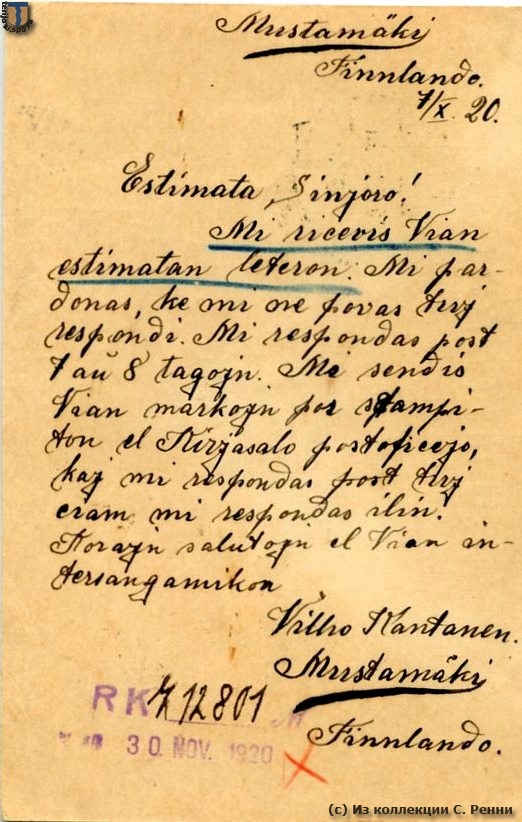 Mustamäki
Finnlando.
7/X. 20.
Estimata Sinjoro!
Mi ricevis Vian
estimatan leteron. Mi par-
donas, ke mi ne povas tuj
respondi. Mi respondas post
7 aŭ 8 tagojn. Mi sendis
Vian markojn por stampi-
ton el Kirjasalo postoficejo,
kaj mi respondas post tuj
eram mi respondas ilin.
Korajn salutojn el Vian in-
tersangamikon
Vilho Kantanen.
Mustamäki
Finnlando.
RK 12801
30. NOV. 1920
(c) Из коллекции С. Ренни